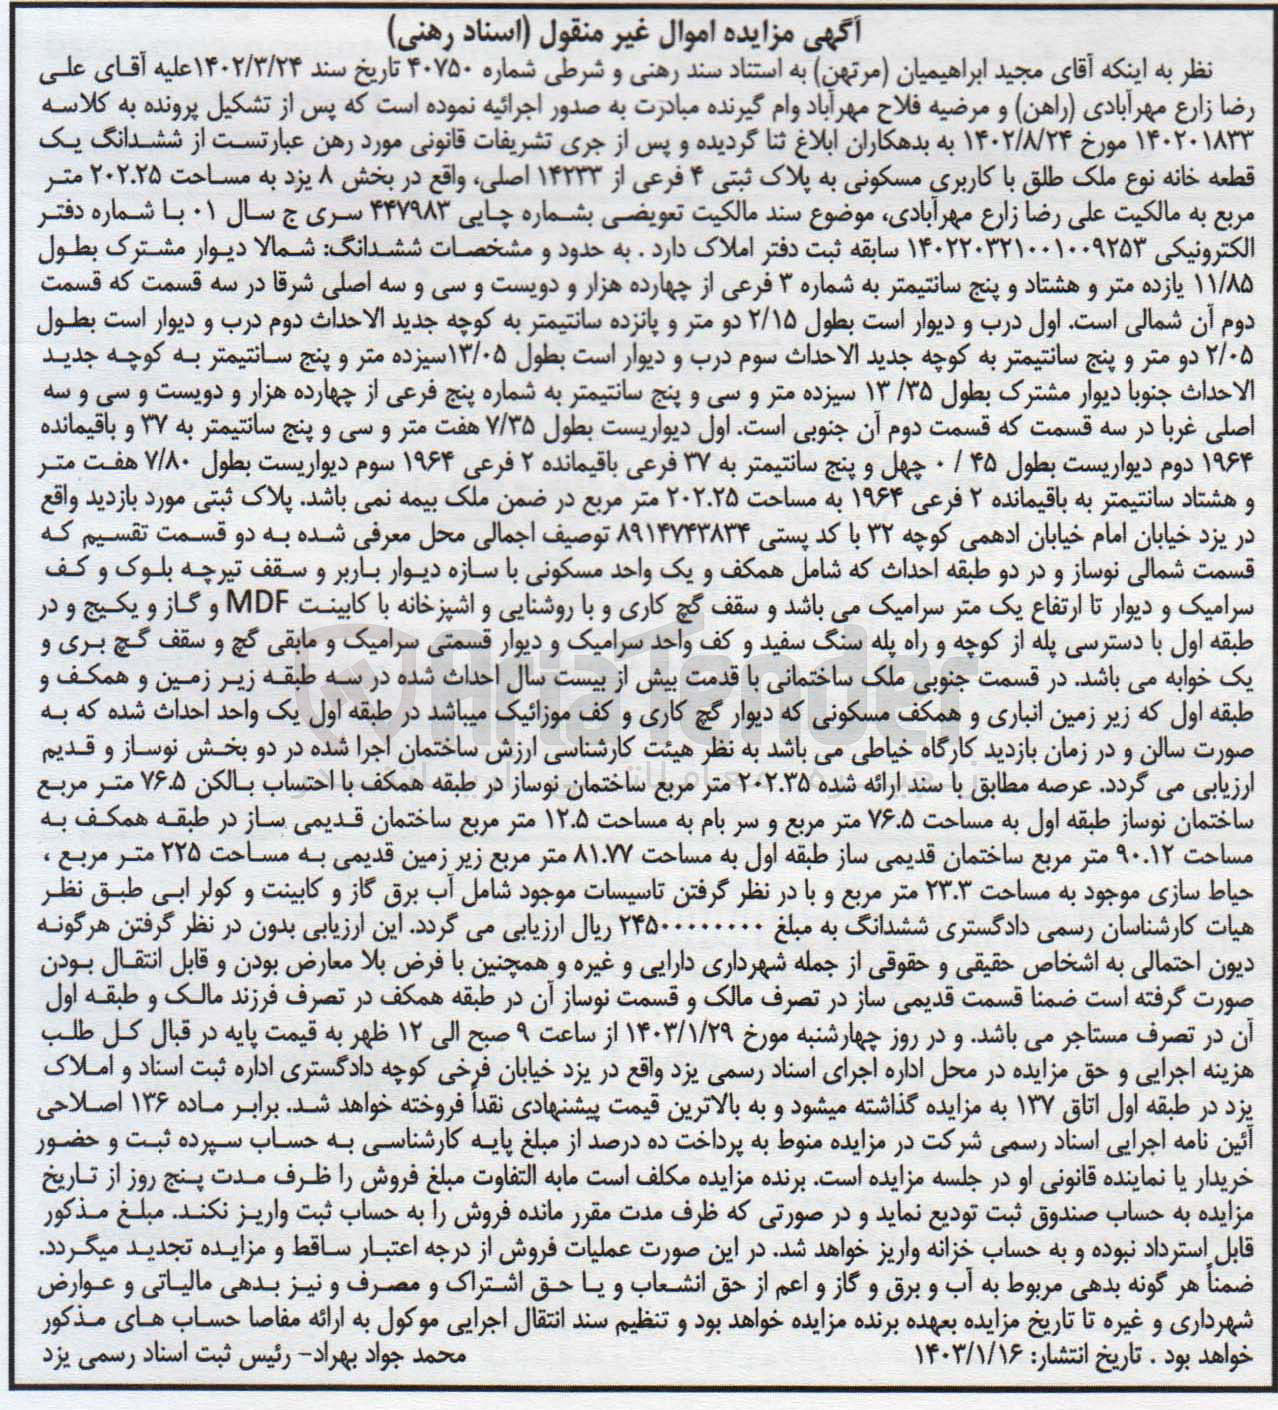 آگهی مزایده اموال غیر منقول (اسناد رهنی)
نظر به اینکه آقای مجید ابراهیمیان (مرتهن) به استناد سند رهنی و شرطی شماره ۴۰۷۵۰ تاریخ سند ۱۴۰۲/۳/۲۴علیه آقای علی
رضا زارع مهرآبادی (راهن) و مرضیه فلاح مهرآباد وام گیرنده مبادرت به صدور اجرائیه نموده است که پس از تشکیل پرونده به کلاسه
۱۴۰۲۰۱۸۳۳ مورخ ۱۴۰۲/۸/۲۴ به بدهکاران ابلاغ ثنا گردیده و پس از جری تشریفات قانونی مورد رهن عبارتست از ششدانگ یک
قطعه خانه نوع ملک طلق با کاربری مسکونی به پلاک ثبتی ۴ فرعی از ۱۴۲۳۳ اصلی، واقع در بخش ۸ یزد به مساحت ۲۰۲.۲۵ متر
مربع به مالکیت علی رضا زارع مهرآبادی، موضوع سند مالکیت تعویضی بشماره چاپی ۴۴۷۹۸۳ سری ج سال ۰۱ با شماره دفتر
الکترونیکی ۱۴۰۲۲۰۳۲۱۰۰۱۰۰۹۲۵۳ سابقه ثبت دفتر املاک دارد . به حدود و مشخصات ششدانگ: شمالا دیوار مشترک بطول
۱۱/۸۵ یازده متر و هشتاد و پنج سانتیمتر به شماره ۳ فرعی از چهارده هزار و دویست و سی و سه اصلی شرقا در سه قسمت که قسمت
دوم آن شمالی است. اول درب و دیوار است بطول ۲/۱۵ دو متر و پانزده سانتیمتر به کوچه جدید الاحداث دوم درب و دیوار است بطول
۲/۰۵ دو متر و پنج سانتیمتر به کوچه جدید الاحداث سوم درب و دیوار است بطول ۱۳/۰۵سیزده متر و پنج سانتیمتر به کوچه جدید
الاحداث جنوبا دیوار مشترک بطول ۳۵/ ۱۳ سیزده متر و سی و پنج سانتیمتر به شماره پنج فرعی از چهارده هزار و دویست و سی و سه
اصلی غربا در سه قسمت که قسمت دوم آن جنوبی است. اول دیواریست بطول ۷/۳۵ هفت متر و سی و پنج سانتیمتر به ۳۷ و باقیمانده
۱۹۶۴ دوم دیواریست بطول ۴۵ / ۰ چهل و پنج سانتیمتر به ۳۷ فرعی باقیمانده ۲ فرعی ۱۹۶۴ سوم دیواریست بطول ۷/۸۰ هفت متر
و هشتاد سانتیمتر به باقیمانده ۲ فرعی ۱۹۶۴ به مساحت ۲۰۲.۲۵ متر مربع در ضمن ملک بیمه نمی باشد. پلاک ثبتی مورد بازدید واقع
در یزد خیابان امام خیابان ادهمی کوچه ۳۲ با کد پستی ۸۹۱۴۷۴۳۸۳۴ توصیف اجمالی محل معرفی شده به دو قسمت تقسیم که
قسمت شمالی نوساز و در دو طبقه احداث که شامل همکف و یک واحد مسکونی با سازه دیوار باربر و سقف تیرچه بلوک و کف
سرامیک و دیوار تا ارتفاع یک متر سرامیک می باشد و سقف گچ کاری و با روشنایی و اشپزخانه با کابینت MDF و گاز و پکیج و در
طبقه اول با دسترسی پله از کوچه و راه پله سنگ سفید و کف واحد سرامیک و دیوار قسمتی سرامیک و مابقی گچ و سقف گچ بری و
یک خوابه می باشد. در قسمت جنوبی ملک ساختمانی با قدمت بیش از بیست سال احداث شده در سه طبقه زیر زمین و همکف و
طبقه اول که زیر زمین انباری و همکف مسکونی که دیوار گچ کاری و کف موزائیک میباشد در طبقه اول یک واحد احداث شده که به
صورت سالن و در زمان بازدید کارگاه خیاطی می باشد به نظر هیئت کارشناسی ارزش ساختمان اجرا شده در دو بخش نوساز و قدیم
ارزیابی می گردد. عرصه مطابق با سند ارائه شده ۲۰۲.۳۵ متر مربع ساختمان نوساز در طبقه همکف با احتساب بالکن ۷۶.۵ متر مربع
ساختمان نوساز طبقه اول به مساحت ۷۶.۵ متر مربع و سر بام به مساحت ۱۲.۵ متر مربع ساختمان قدیمی ساز در طبقه همکف به
مساحت ۹۰.۱۲ متر مربع ساختمان قدیمی ساز طبقه اول به مساحت ۸۱.۷۷ متر مربع زیر زمین قدیمی به مساحت ۲۲۵ متر مربع ،
حیاط سازی موجود به مساحت ۲۳.۳ متر مربع و با در نظر گرفتن تاسیسات موجود شامل آب برق گاز و کابینت و کولر ابی طبق نظر
هیات کارشناسان رسمی دادگستری ششدانگ به مبلغ ۲۴۵۰۰۰۰۰۰۰۰ ریال ارزیابی می گردد. این ارزیابی بدون در نظر گرفتن هرگونه
دیون احتمالی به اشخاص حقیقی و حقوقی از جمله شهرداری دارایی و غیره و همچنین با فرض بلا معارض بودن و قابل انتقال بودن
صورت گرفته است ضمنا قسمت قدیمی ساز در تصرف مالک و قسمت نوساز آن در طبقه همکف در تصرف فرزند مالک و طبقه اول
آن در تصرف مستاجر می باشد. و در روز چهارشنبه مورخ ۱۴۰۳/۱/۲۹ از ساعت ۹ صبح الی ۱۲ ظهر به قیمت پایه در قبال کل طلب
هزینه اجرایی و حق مزایده در محل اداره اجرای اسناد رسمی یزد واقع در یزد خیابان فرخی کوچه دادگستری اداره ثبت اسناد و املاک
یزد در طبقه اول اتاق ۱۳۷ به مزایده گذاشته میشود و به بالاترین قیمت پیشنهادی نقداً فروخته خواهد شد. برابر ماده ۱۳۶ اصلاحی
آئین نامه اجرایی اسناد رسمی شرکت در مزایده منوط به پرداخت ده درصد از مبلغ پایه کارشناسی به حساب سپرده ثبت و حضور
خریدار یا نماینده قانونی او در جلسه مزایده است. برنده مزایده مکلف است مابه التفاوت مبلغ فروش را ظرف مدت پنج روز از تاریخ
مزایده به حساب صندوق ثبت تودیع نماید و در صورتی که ظرف مدت مقرر مانده فروش را به حساب ثبت واریز نکند. مبلغ مذکور
قابل استرداد نبوده و به حساب خزانه واریز خواهد شد. در این صورت عملیات فروش از درجه اعتبار ساقط و مزایده تجدید میگردد.
ضمناً هر گونه بدهی مربوط به آب و برق و گاز و اعم از حق انشعاب و یا حق اشتراک و مصرف و نیز بدهی مالیاتی و عوارض
شهرداری و غیره تا تاریخ مزایده بعهده برنده مزایده خواهد بود و تنظیم سند انتقال اجرایی موکول به ارائه مفاصا حساب های مذکور
خواهد بود . تاریخ انتشار: ۱۴۰۳/۱/۱۶ محمد جواد بهراد- رئیس ثبت اسناد رسمی یزد
AriaTender